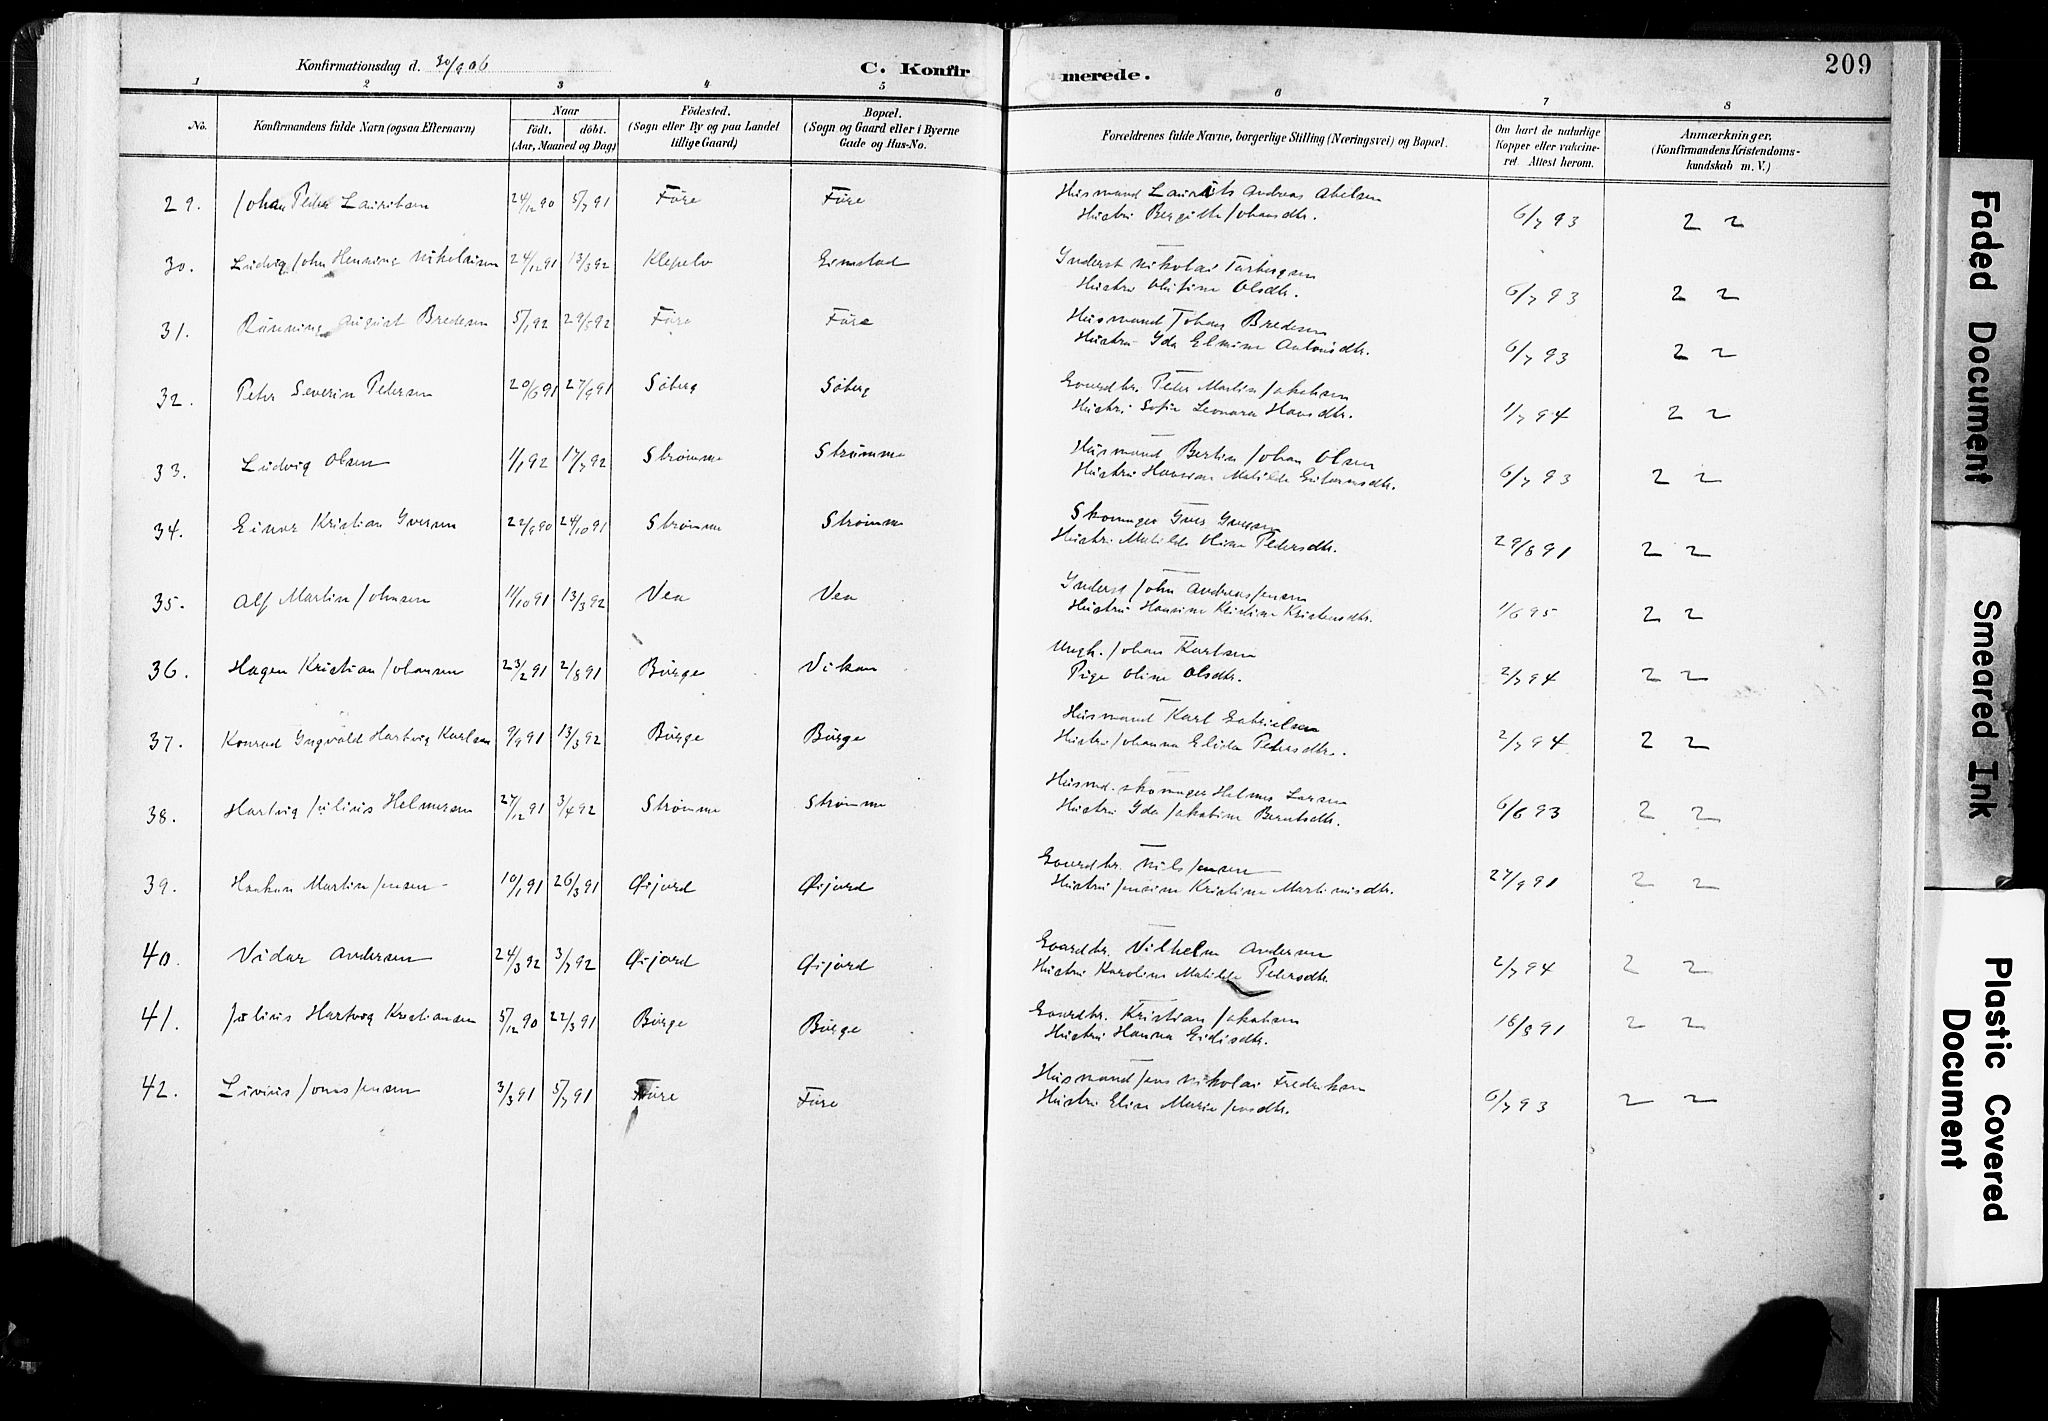 Konfirmationsdag d. 30/9 06 C. Konfirmerede. 209
1 2 3 4 5 6 7 8
No. Konfirmandens fulde Navn (ogsaa Efternavn) Naar født. døbt. (Aar, Maaned og Dag) Fødested. (Sogn eller By og paa Landet tillige Gaard) Bopæl. (Sogn og Gaard eller i Byerne Gade og Hus-No. Forældrenes fulde Navne, borgerlige Stilling (Næringsvei) og Bopæl. Om havt de naturlige Kopper eller vakcineret. Attest herom. Anmærkninger. (Konfirmandens Kristendomskundskab m. V.)
29. Johan Peder Lauritsen 24/12 90 5/7 91 Füre Füre Husmand Laurits Andreas Abelsen
Hustru Bergitte Johansdtr. 6/7 93 2 2
30. Ludvig John Henning Nikolaisen 24/12 91 13/3 92 Klepelv Eimstad Inderst Nikolai Torbergsen
Hustru Olufine Olsdtr. 6/7 93 2 2
31. Rønning August Bredesen 5/1 92 29/5 92 Füre Füre Husmand Johan Bredesen
Hustru Ida Elmine Antonsdtr. 6/7 93 2 2
32. Peter Severin Pedersen 20/6 91 27/9 91 Søberg Søberg Gaardbr. Peter Martin Jakobsen
Hustru Sofie Leonara Hansdtr. 1/7 94 2 2
33. Ludvig Olsen 1/1 92 17/7 92 Strømme Strømme Husmand Bertin Johan Olsen
Hustru Matilde 6/7 93 2 2
34. Einar Kristian Iversen 22/9 90 24/10 91 Strømme Strømme Skomager Iver Iversen
Hustru Matilde Oline Pedersdtr. 29/8 91 2 2
35. Alf Martin Johnsen 11/10 91 13/3 92 Vea Vea Inderst John Andreas Jensen
Hustru Hansine Kristine Kristensdtr. 1/6 95 2 2
36. Hagen Kristian Johansen 23/2 91 2/8 91 Børge Vikan Ungk. Johan Karlsen
Pige Oline Olsdtr. 2/7 94 2 2
37. Konrad Ingvald Hartvig Karlsen 9/9 91 13/3 92 Børge Børge Husmand Karl Gabrielsen
Hustru Johanna Elida Petersdtr. 2/7 94 2 2
38. Hartvig Julius Helmersen 27/12 91 3/4 92 Strømme Strømme Husmd. skomager Helmer Larsen
Hustru Ida Jakobine Berntsdtr. 6/6 93 2 2
39. Haakon Martin Jensen 10/1 91 26/3 91 Øijord Øijord Gaardbr. Nils Jensen
Hustru Jensine Kristine Martinusdtr. 27/9 91 2 2
40. Vidar Andersen 24/3 92 3/7 92 Øijord Øijord Gaardbr. Vilhelm Andersen
Hustru Karoline Matilde Pedersdtr. 2/7 94 2 2
41. Julius Hartvig Kristiansen 5/12 90 22/3 91 Børge Børge Gaardbr. Kristian Jakobsen
Hustru Hanna Eidisdtr. 16/8 91 2 2
42. Livius Jons Jensen 3/3 91 5/7 91 Füre Füre Husmand Jens Nikolai Frederiksen
Hustru Elise Marie Jensdtr. 6/7 93 2 2
Faded Document
Smeared Ink
Plastic Covered Document